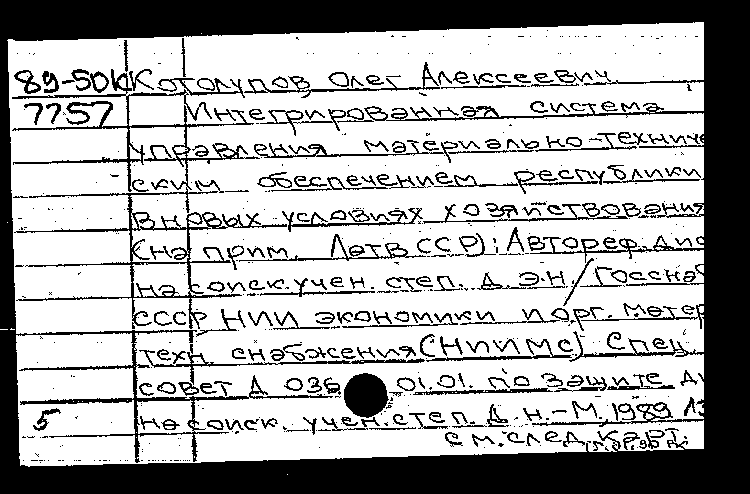 89-50к Котолупов Олег Алексеевич
7757 Интегрированная система
управления материально-техниче
ским обеспечением республики
в новых условиях хозяйствования
(на прим. Латв ССР): Автореф. дис
на соиск. учен. степ. д. э.н. / Госсна
СССР НИИ экономики и орг. матер
техн. снабжения (НИИМС) Спец.
совет Д 036 01.01. по защите ди
5 на соиск. учен. степ. д. н. - М, 1989
см. след. к